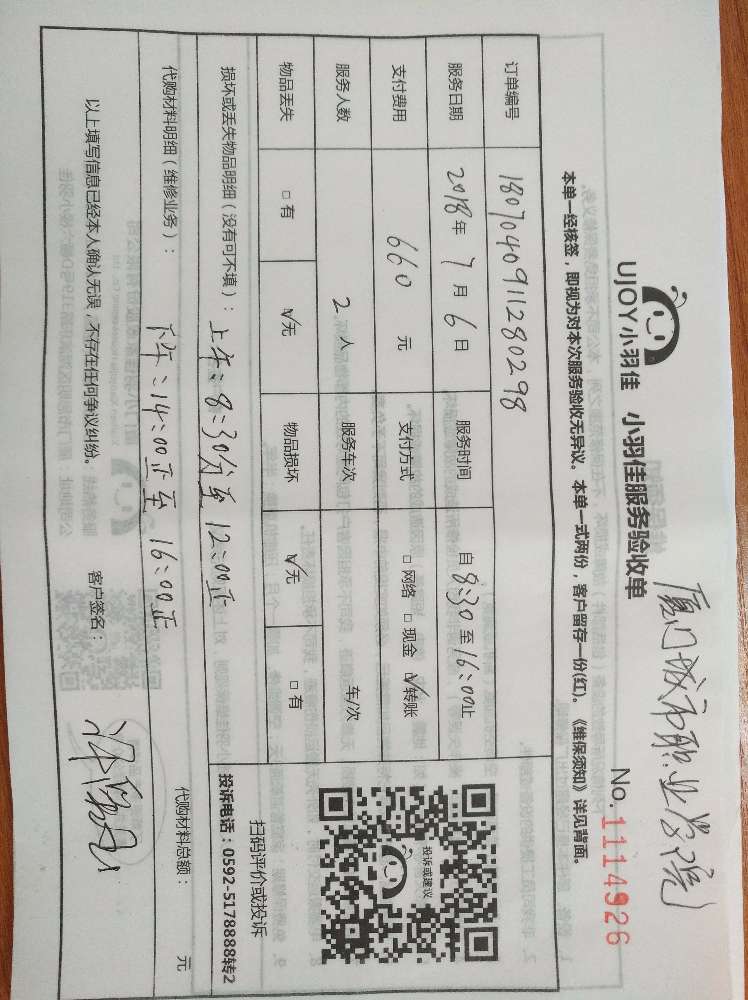 厦门城市职业学院
UJOY小羽佳 小羽佳服务验收单
No.1114926
本单一经核签，即视为对本次服务验收无异议。本单一式两份，客户留存一份(红)。《维保须知》详见背面。
订单编号 1807040911280298
服务日期 2018年7月6日 服务时间 自8:30至16:00止
支付费用 660 元 支付方式 □网络 □现金 ☑转账
服务人数 2 人 服务车次 车/次
物品丢失 □有 ☑无 物品损坏 ☑无 □有
投诉或建议
扫码评价或投诉
投诉电话：0592-5178888转2
损坏或丢失物品明细（没有可不填）：上午：8:30分至12:00正
代购材料明细（维修业务）：下午：14:00正至16:00正
代购材料总额： 元
以上填写信息已经本人确认无误，不存在任何争议纠纷。 客户签名：